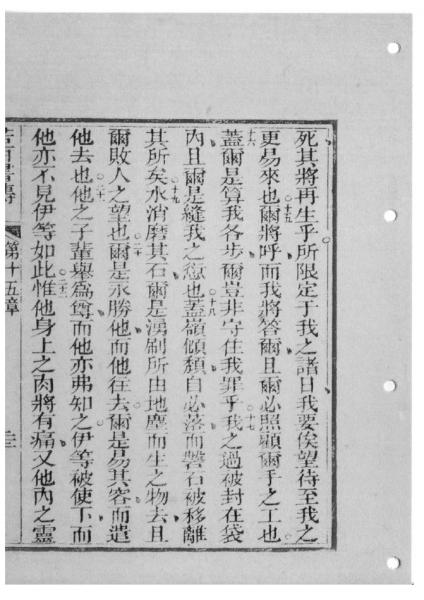 死其將再生乎所限定于我之諸日我要俟望待至我之
更易來也十五爾將呼而我將答爾且爾必照顧爾手之工也
十六蓋爾是算我各步爾豈非守住我罪乎十七我之過被封在袋
內且爾是縫我之愆也十八蓋嶺傾頹自必落而磐石被移離
其所矣十九水消磨其石爾是湧刷所由地塵而生之物去且
爾敗人之望也二十爾是永勝他而他往去爾是易其容而遣
他去也二一他之子輩舉為尊而他亦弗知之伊等被使下而
他亦不見伊等如此二二惟他身上之肉將有痛又他內之靈
第十五章